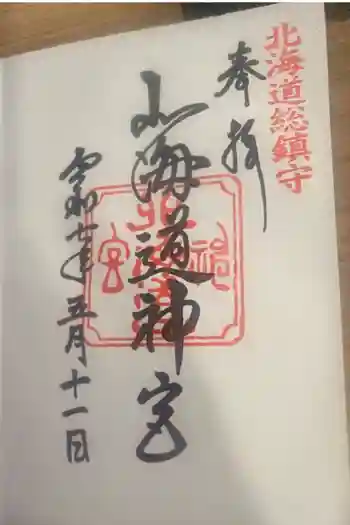 北海道総鎮守
奉拝
北海道神宮
令和七年五月十一日